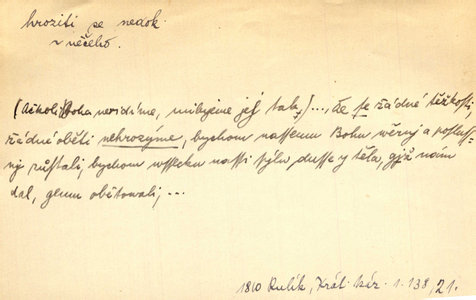 hroziti se nedok.
z něčeho.
(Ačkoli Boha nevidíme, milujeme jej tak,) ..., že se žádné těžkosti,
žádné oběti nehrozýme, bychom nassemu Bohu wěrný a posluss-
ný zůstali, bychom wssecku nassi sýlu, dusse y těla, gjž nám
dal, gemu obětowali, ...
1810 Rulík, Krát. káz. 1. 138, 21.